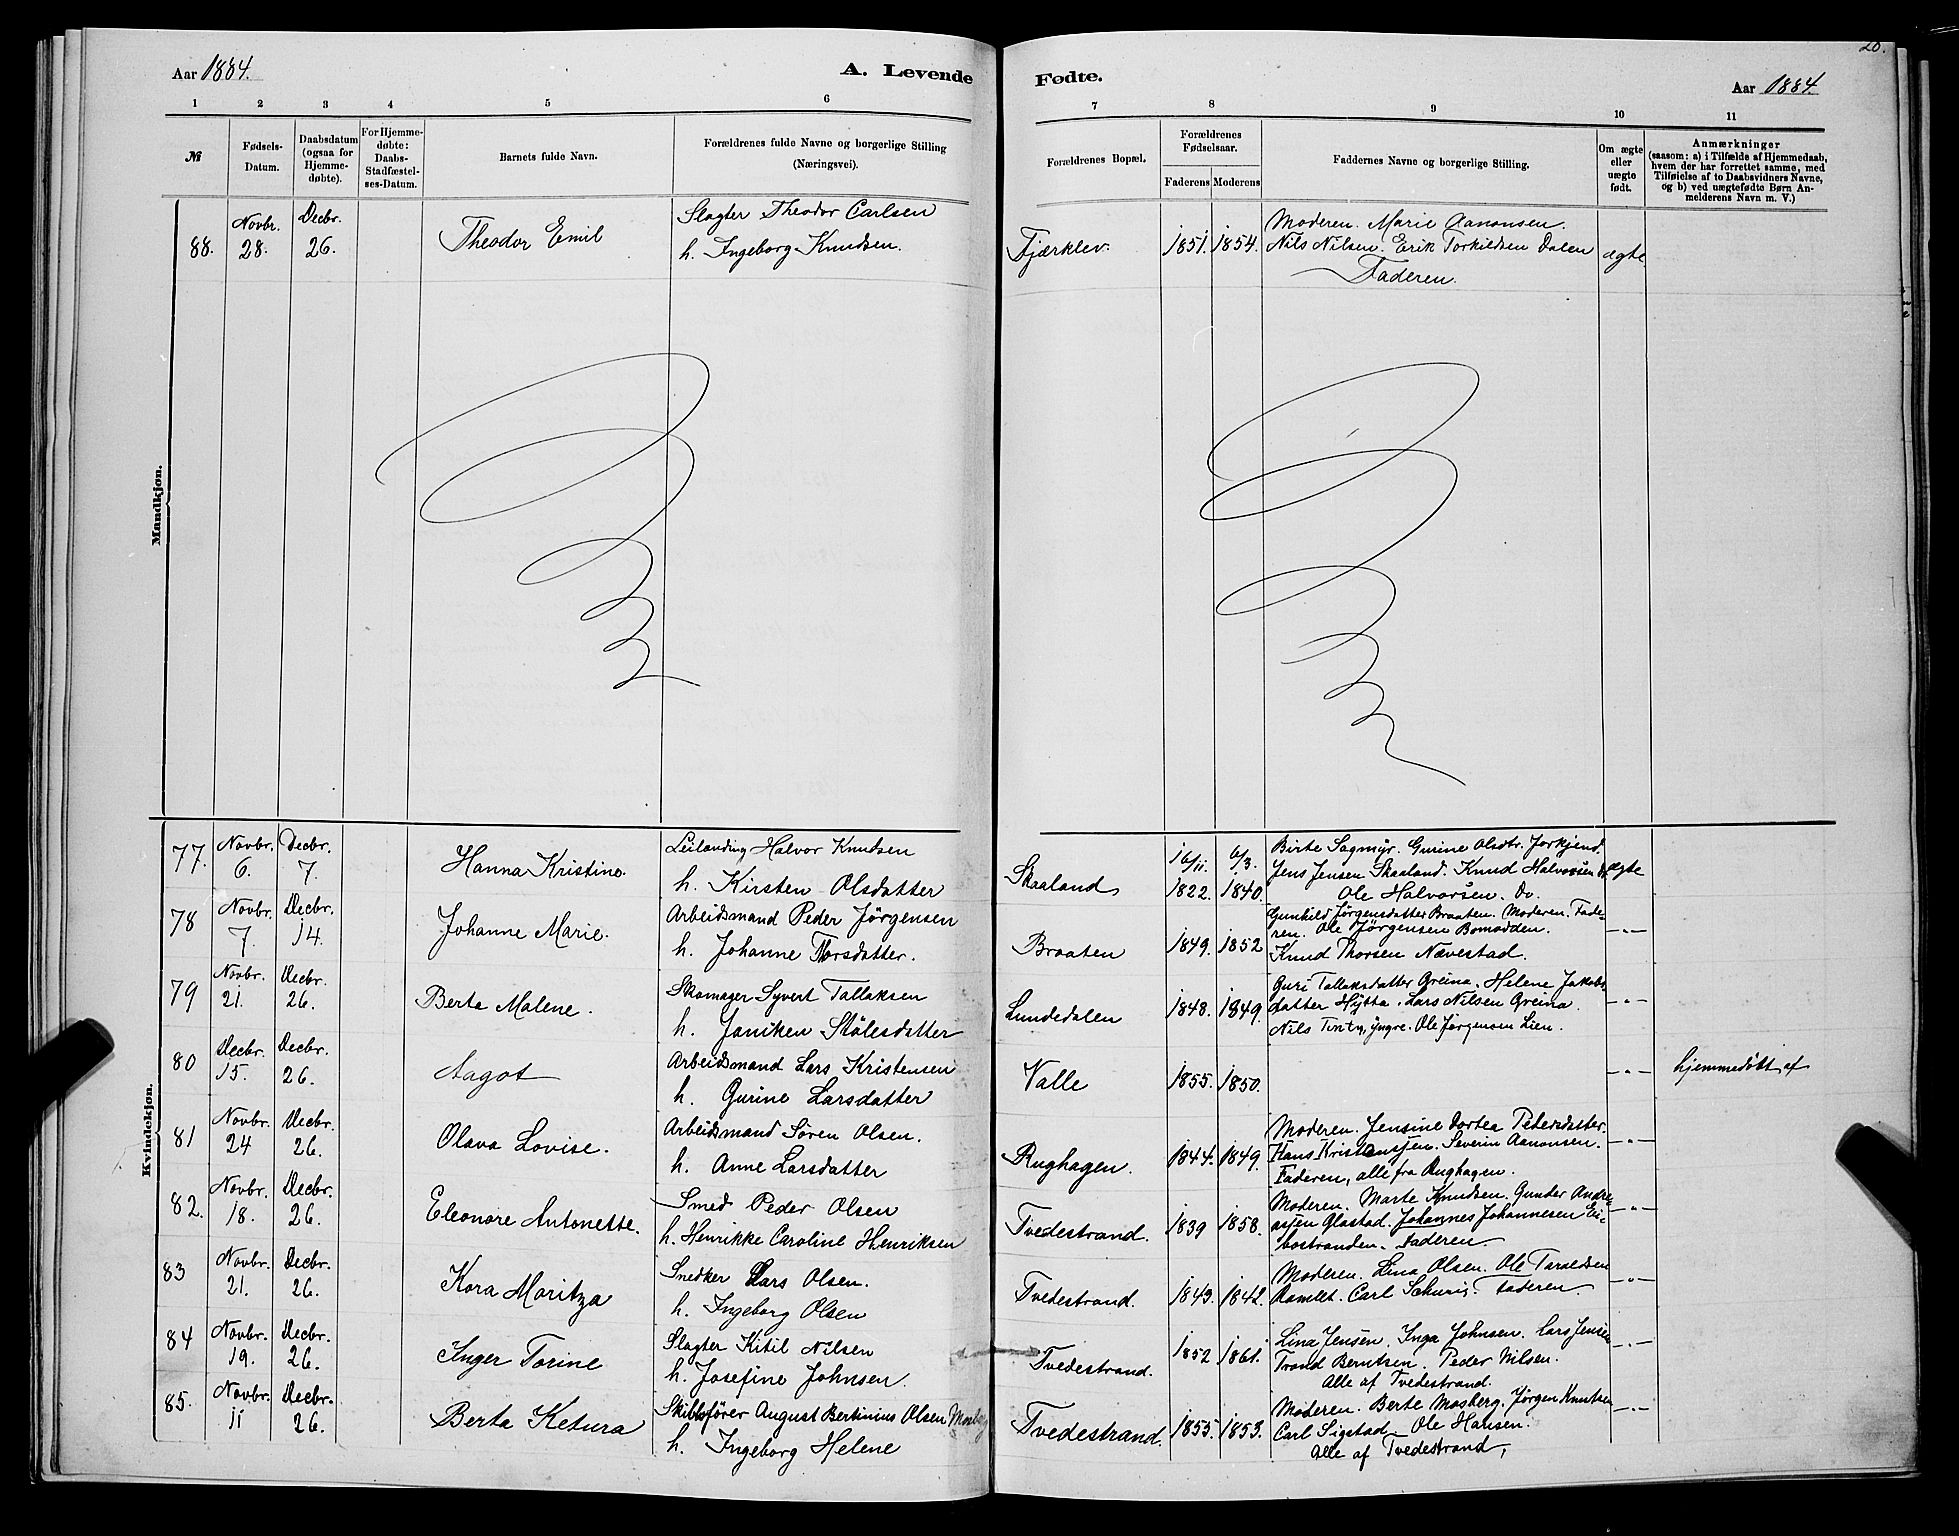 Aar 1884.
A. Levende Fødte.
Aar 1884.
1 2 3 4 5 6 7 8 9 10 11
№
Fødsels-Datum.
Daabsdatum (ogsaa for Hjemme-døbte).
For Hjemme-døbte: Daabs-Stadfæstel-ses-Datum.
Barnets fulde Navn.
Forældrenes fulde Navne og borgerlige Stilling
(Næringsvei).
Forældrenes Bopæl.
Forældrenes Fødselsaar.
Faderens Moderens
Faddernes Navne og borgerlige Stilling.
Om ægte eller uægte født.
Anmærkninger
(saasom: a) i Tilfælde af Hjemmedaab,
hvem der har forrettet samme, med
Tilføielse af to Daabsvidners Navne,
og b) ved uægtefødte Børn An-
melderens Navn m. V.)
Mandkjøn.
88. Novbr. 28. Decbr. 26. Theodor Emil
Slagter Theodor Carlsen
h. Ingeborg Knudsen.
Fjærklev. 1851. 1854.
Moderen. Marie Aanonsen.
Nils Nilsen. Erik Torkildsen Dalen
Faderen.
ægte
Kvindekjøn.
77. Novbr. 6. Decbr. 7. Hanna Kristine.
Leilænding Halvor Knudsen
h. Kirsten Olsdatter
Skaaland 16/11. 1822. 6/3. 1840.
Birte Sagmyr. Gurine Olsdtr. Jorkjend
Jens Jensen Skaaland. Knud Halvorsen
Ole Halvorsen. Do.
ægte
78 Novbr. 7. Decbr. 14. Johanne Marie.
Arbeidsmand Peder Jörgensen
h. Johanne Thorsdatter.
Braaten 1849. 1852
Gunhild Jørgensdatter Braaten. Moderen. Fade-
ren. Ole Jörgensen Bomodden.
Knud Thorsen Nævestad.
-"-
79 Novbr. 21. Decbr. 26. Berta Malene.
Skomager Syvert Tallaksen
h. Janiken Stölesdatter
Lundedalen 1848. 1849.
Guri Tallaksdatter Greina. Helene Jakobs
datter Hytta. Lars Nilsen Greina.
Nils yngre. Ole Jørgensen Lien.
-"-
80 Decbr. 15. Decbr. 26. Aagot
Arbeidsmand Lars Kristensen
h. Gurine Larsdatter
Valle 1855. 1850.
-"-
hjemmedöbt af
81 Novbr. 24 Decbr. 26. Olava Lovise.
Arbeidsmand Sören Olsen.
h. Anne Larsdatter
Rughagen. 1844. 1849.
Moderen. Jensine Dortea Pedersdatter.
Hans Kristiansjen. Severin Aanonsen.
Faderen, alle fra Rughagen.
-"-
82. Novbr. 18. Decbr. 26. Eleonore Antonette.
Smed Peder Olsen
h. Henrikke Caroline Henriksen
Tvedestrand. 1839 1858.
Moderen. Marte Knudsen. Gunder Andre
asjen Glastad. Johannes Johannesen Ei-
bostranden. Faderen
-"-
83 Novbr. 21. Decbr. 26. Kora Moritza
Snedker Lars Olsen.
h. Ingeborg Olsen
Tvedestrand. 1843. 1842.
Moderen. Lina Olsen. Ole Taraldsen
Ramlet. Carl Schurig. Faderen.
-"-
84 Novbr. 19. Decbr. 26. Inger Torine
Slagter Kitil Nilsen
h. Josefine Johnsen.
Tvedestrand. 1852 1861.
Lina Jensen. Inga Johnsen. Lars Jensen
Trond Berntsen. Peder Nilsen.
Alle af Tvedestrand.
-"-
85. Novbr. 11 Decbr. 26. Berta Ketura
Skibsförer August Bertinius Olsen Mosberg
h. Ingeborg Helene
Tvedestrand. 1855. 1853.
Moderen. Berte Mosberg. Jørgen Knutsen
Carl Sigstad. Ole Hansen.
Alle af Tvedestrand,
-"-